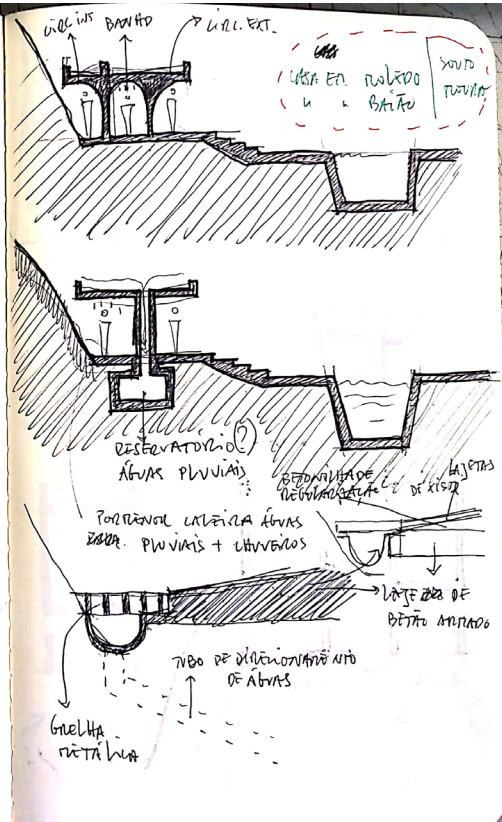 CIRC INT. BANHO CIRC. EXT.
CASA
CASA EM MOLEDO
" " BAIÃO
SOUTO
MOURA
RESERVATÓRIO(?)
ÁGUAS PLUVIAIS
BETONILHA DE
REGULARIZAÇÃO
LAJETAS
DE XISTO
PORMENOR CALEIRA ÁGUAS
PLUVIAIS + CHUVEIROS
LAJE DE
BETÃO ARMADO
TUBO DE DIRECIONAMENTO
DE ÁGUAS
GRELHA
METÁLICA